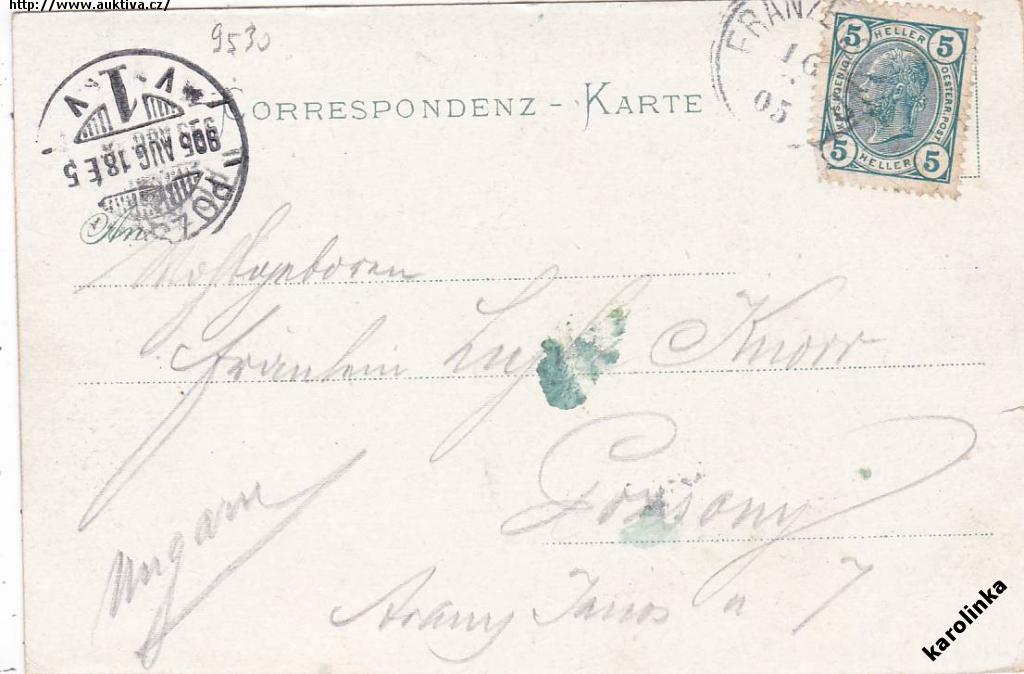 http://www.auktiva.cz/
9530
CORRESPONDENZ - KARTE
FRANZE
16
05
5 HELLER 5
KAIS. KOENIGL. OESTERR. POST
5 HELLER 5
1
905 AUG 18 É 5
POZS
An
Wohlgeboren
Fräulein Knorr
Pozsony
Arany Janos u 7
Ungarn
karolinka